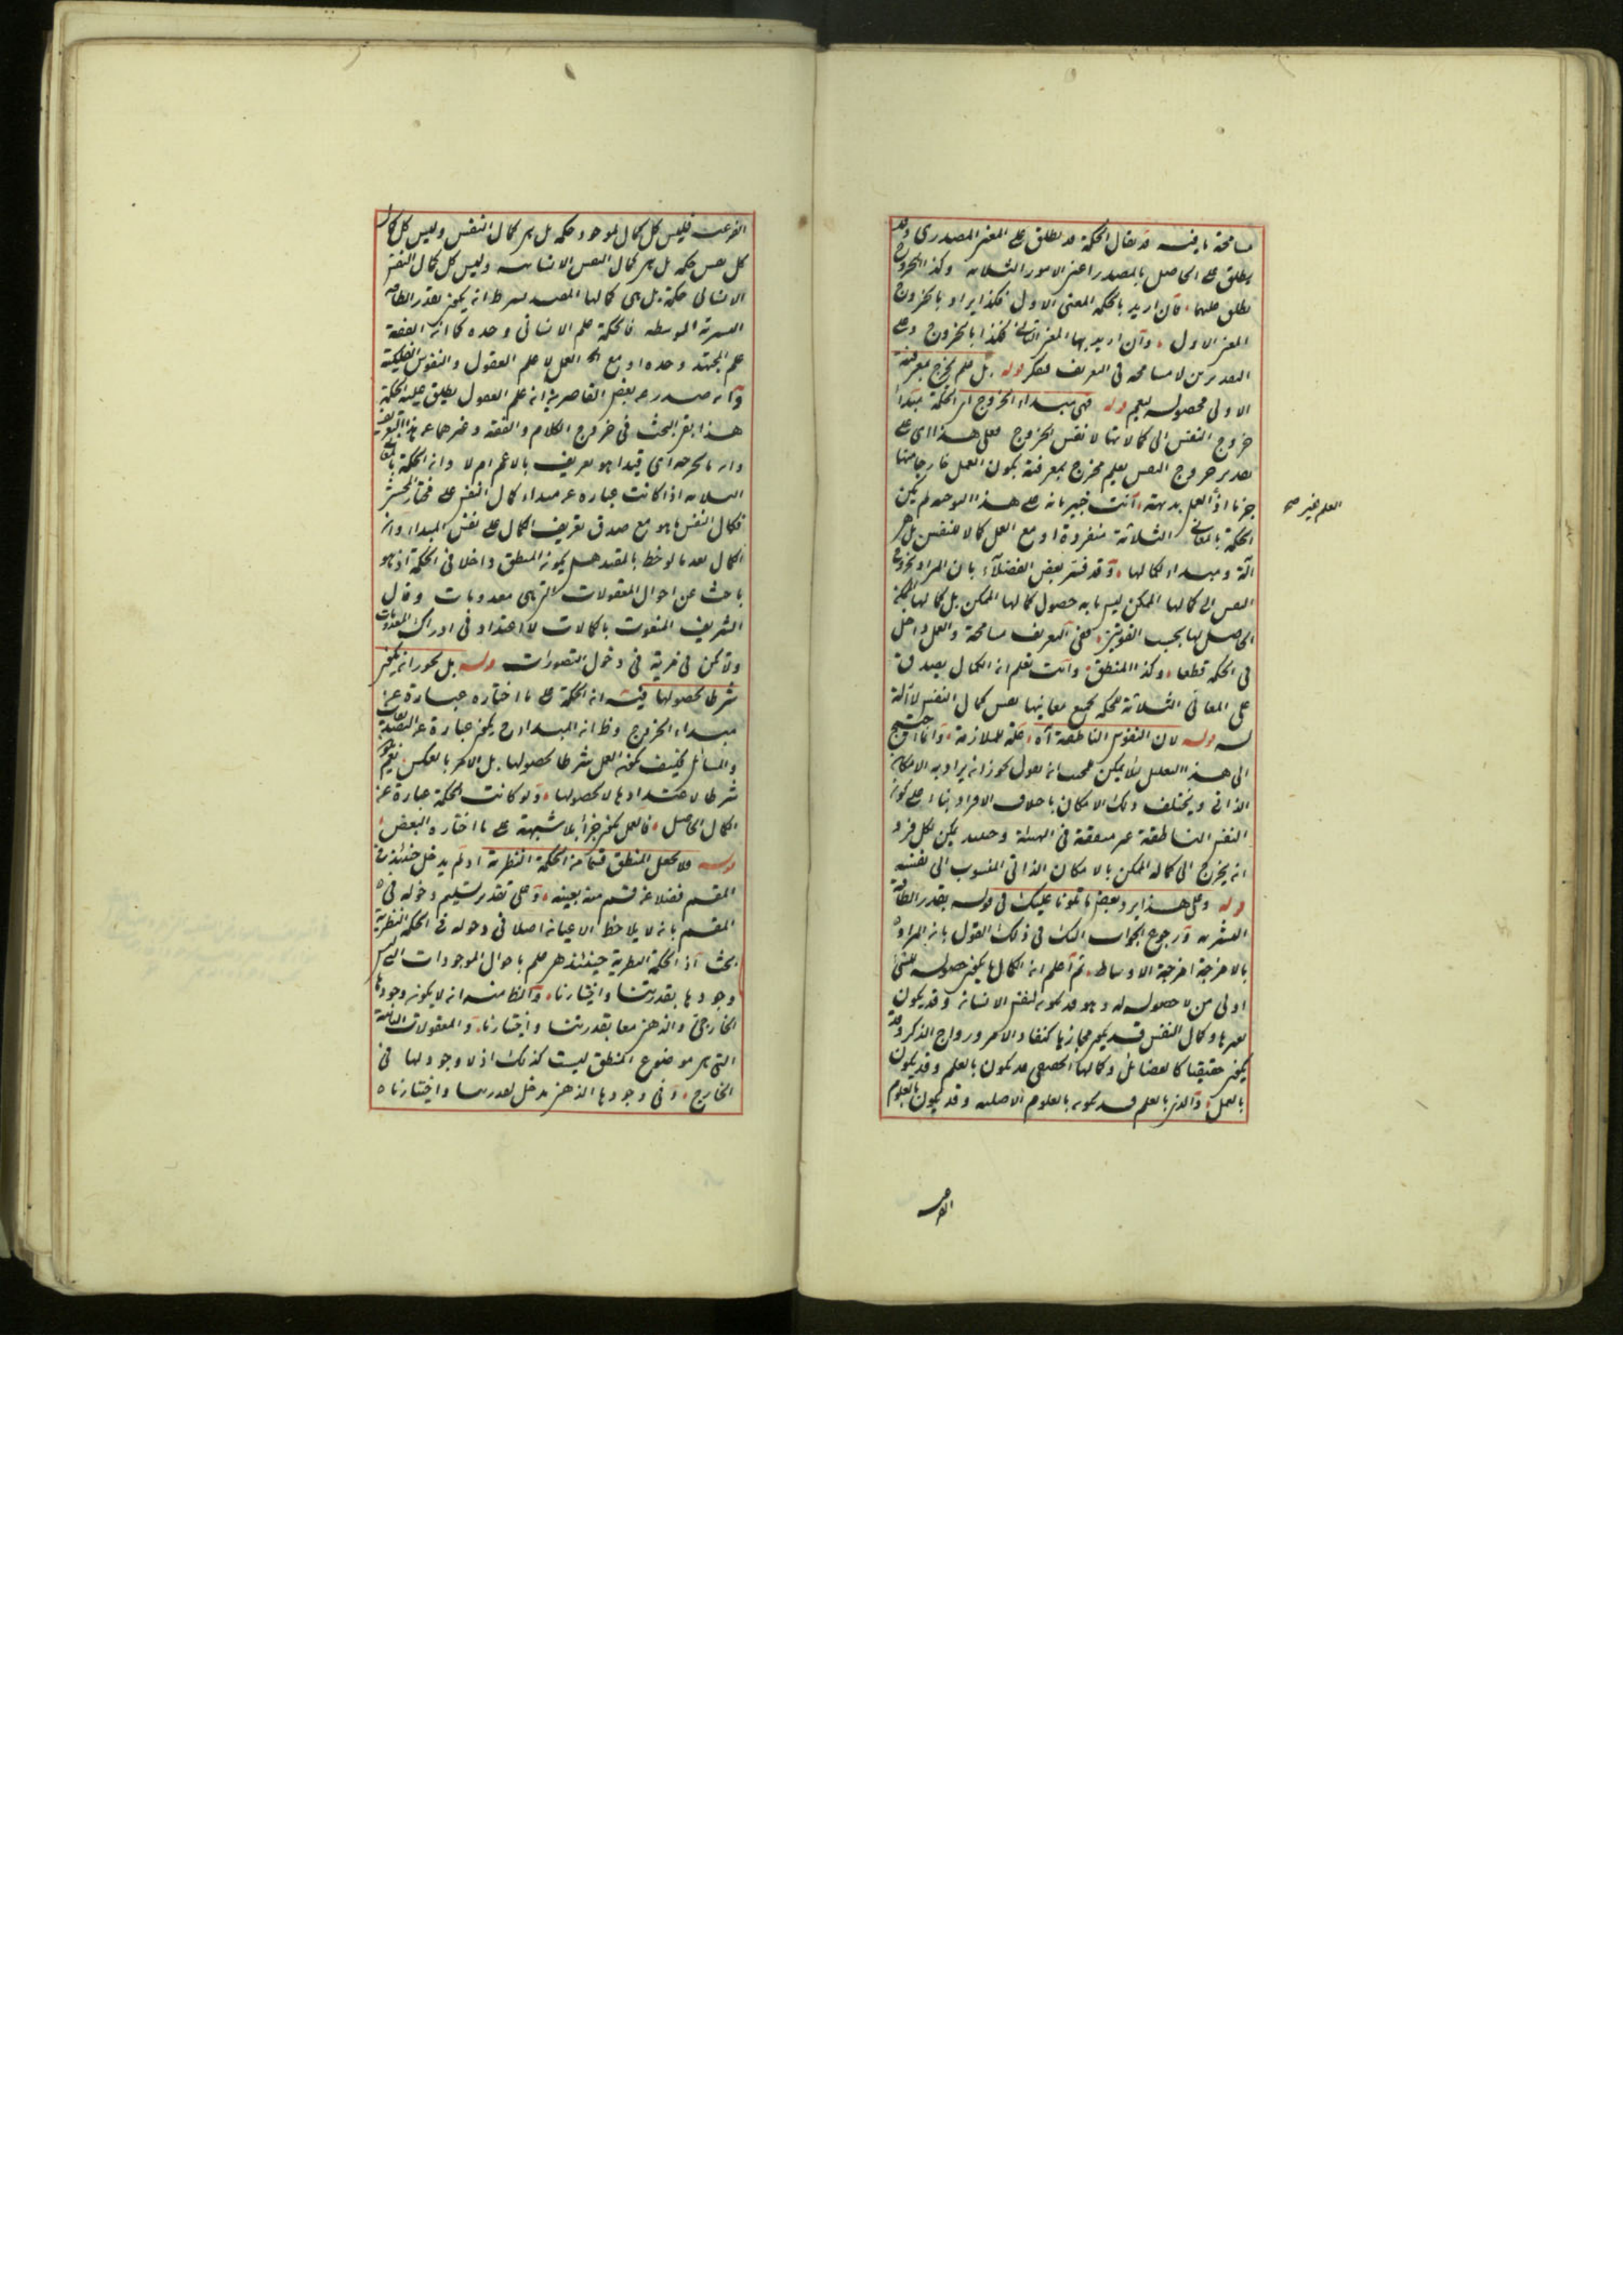 مسامحة ما فيه قد يقال الحكمة قد يطلق على المعنى المصدري وقد
يطلق على الحاصل بالمصدر اعني الامور الثلاثة وكذا الخروج
يطلق عليهما فان اريد بالحكمة المعنى الاول فكذا يراد بالخروج
المعنى الاول وان اريد بها المعنى الثاني فكذا بالخروج وعلى
التقديرين لا مسامحة في التعريف فتفكر قوله بل علم يخرج بمعرفته
الاولى بحصوله ليعم قوله فهي مبداء الخروج اي الحكمة مبدأ
خروج النفس الى كمالاتها لا نفس الخروج فعلى هذا اي على
تقدير خروج النفس بعلم يخرج بمعرفته يكون العمل خارجا منها
جزما اذ العمل بديهة وانت خبير بانه على هذا التوجيه لم يكن
العلم غير صح
الحكمة بالمعاني الثلاثة منفردة او مع العمل كمالا للنفس بل هي
آلة ومبداء لكمالها وقد فسر بعض الفضلاء بان المراد بخروج
النفس الى كمالها الممكن ليس ما به حصول كمالها الممكن بل كمالها الممكن
الحاصل لها بحسب القوتين ففي التعريف مسامحة والعمل داخل
في الحكمة قطعا وكذا المنطق وانت تعلم ان الكمال يصدق
على المعاني الثلاثة للحكمة بجميع معانيها نفس كمال النفس لا آلة
له قوله لان النفوس الناطقة آه علة للملازمة وانما احتيج
الى هذا التعليل لانه يمكن لمجيب ان يقول يجوز ان يراد به الامكان
الذاتي ويختلف ذلك الامكان باختلاف الافراد بناء على كون
النفس الناطقة غير متفقة في الهيئة وحينئذ يمكن لكل فرد
ان يخرج الى كماله الممكن بالامكان الذاتي المنسوب الى نفسه
قوله وعلى هذا يرد بعض ما تلونا عليك في قوله بقدر الطاقة
البشرية ورجوع الجواب اليك في ذلك القول بان المراد
بالامزجة امزجة الاوساط ثم اعلم ان الكمال ما يكون حصوله للشئ
اولى من لا حصوله له وهو قد يكون لنفس الانسان وقد يكون
لغيرها وكمال النفس قد يكون مجازيا كنفاد الامر ورواج الذكر وقد
يكون حقيقيا كالفضائل وكمالها الحقيقي قد يكون بالعلم وقد يكون
بالعمل والذي بالعلم قد يكون بالعلوم الاصلية وقد يكون بالعلوم
الفرعية
الفرعية فليس كل كمال لموجود حكمة بل هي كمال النفس وليس كل كمال
كل نفس حكمة بل هي كمال النفس الانسانية وليس كل كمال النفس
الانساني حكمة بل هي كمالها المقيد بشرط ان يكون بقدر الطاقة
البشرية المتوسطة فالحكمة علم الانساني وحده كما ان الفقه
علم المجتهد وحده او مع العمل لا علم العقول والنفوس الفلكية
وما صدر عن بعض القاصرين ان علم العقول يطلق عليه الحكمة
هذا بقي البحث في خروج الكلام والفقه وغيرهما عن هذا التعريف
وانه ما يخرجه اي قيد اهو تعريف بالاعم ام لا وان الحكمة بالمعاني
الثلاثة اذا كانت عبارة عن مبداء كمال النفس على مختار المحشي
فكمال النفس ما هو مع صدق تعريف الكمال على نفس المبداء وان
الكمال بعد ما لوحظ بالمقيد هل يكون المنطق داخلا في الحكمة اذ هو
باحث عن احوال المعقولات التي هي معدومات وقال
الشريف المنعوت بالكمالات لا اعتداد في ادراك المعدومات
ولا تكن في مرية في دخول التصورات قوله بل يجوز ان يكون
شرطا لحصولها فيه ان الحكمة على ما اختاره عبارة عن
مبداء الخروج وظ ان المبداء ح يكون عبارة عن التصديقات
والمسائل فكيف يكون العمل شرطا لحصولها بل الامر بالعكس نعم يكون
شرطا لاعتدادها لا لحصولها ولو كانت الحكمة عبارة عن
الكمال الحاصل فالعمل يكون جزأ بلا شبهة على ما اختاره البعض
قوله فلا يجعل المنطق قسما من الحكمة النظرية اذ لم يدخل حينئذ في
المقسم فضلا عن قسم منه بعينه وعلى تقدير تسليم دخوله في
المقسم بانه لا يلاحظ الاعيان اصلا في دخوله في الحكمة النظرية
بحث اذ الحكمة النظرية حينئذ هي علم باحوال الموجودات التي ليس
وجودها بقدرتنا واختيارنا والظ منه ان لا يكون وجودها
الخارجي والذهني معا بقدرتنا واختيارنا والمعقولات الثانية
التي هي موضوع المنطق ليست كذلك اذ لا وجود لها في
الخارج وفي وجودها الذهني مدخل لقدرتنا واختيارنا